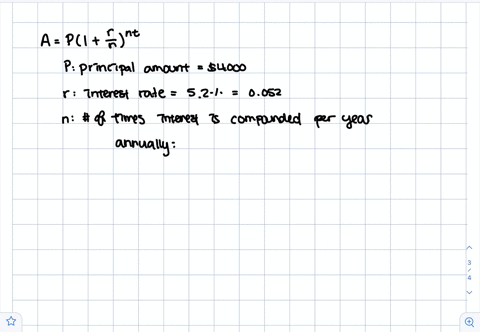 A = P(1 + r/n)^nt
P: principal amount = $4000
r: interest rate = 5.2% = 0.052
n: # of times interest is compounded per year
annually:
3
/
4